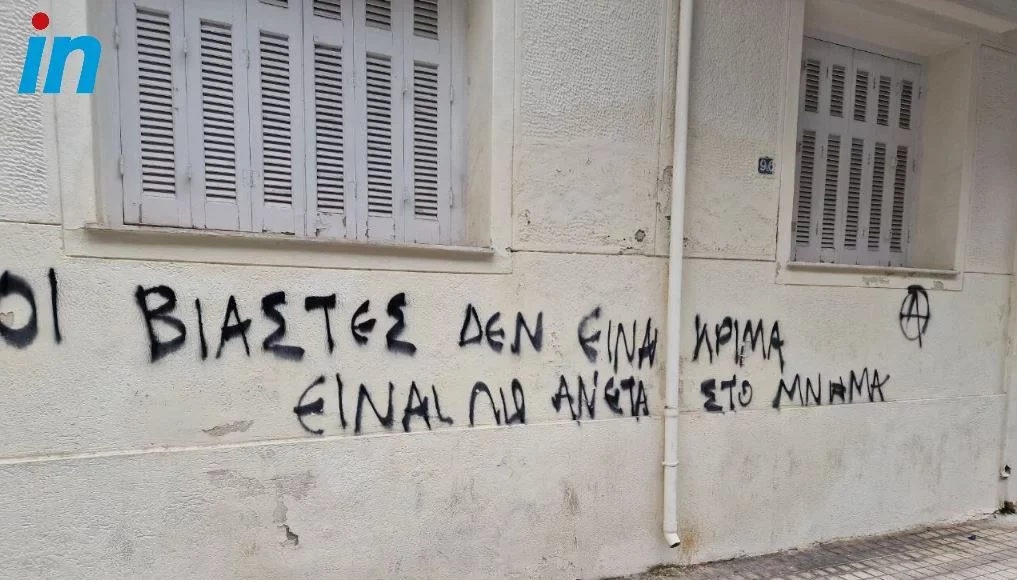 in
ΟΙ ΒΙΑΣΤΕΣ ΔΕΝ ΕΙΝΑΙ ΚΡΙΜΑ
ΕΙΝΑΙ ΠΙΟ ΑΝΕΤΑ ΣΤΟ ΜΝΗΜΑ